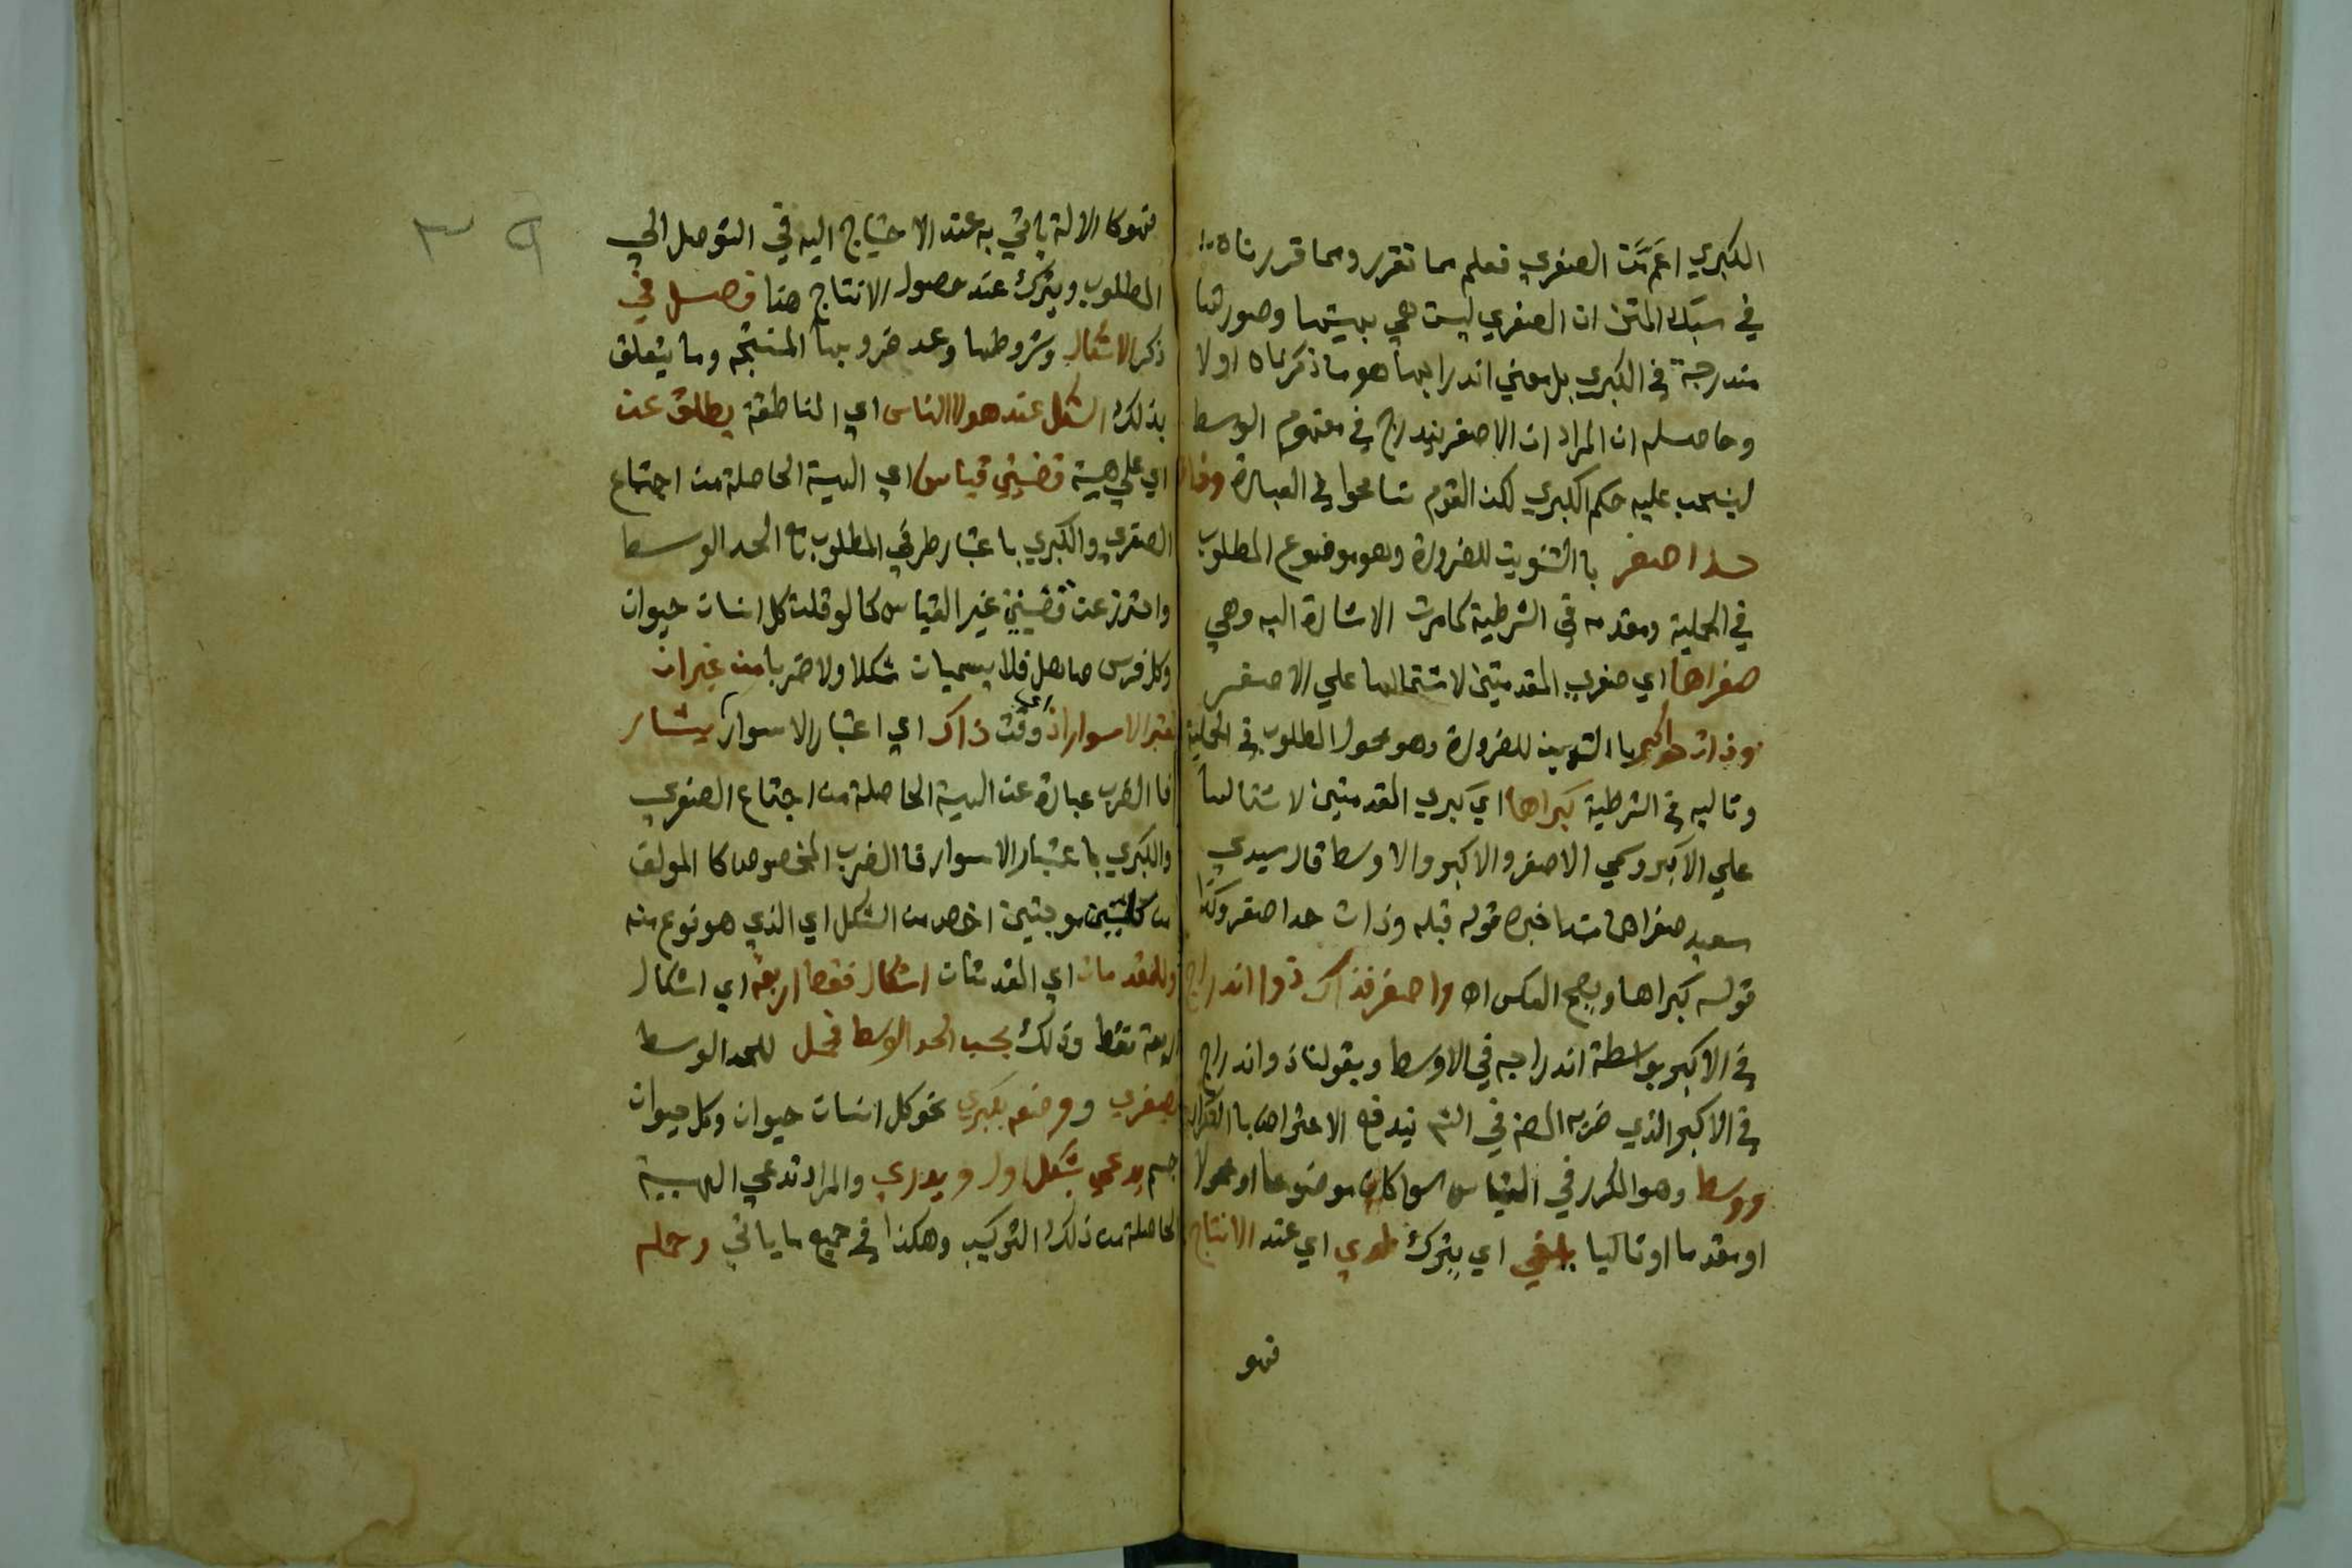 الكبري اعم من الصغري فعلم مما تقرر ومما قررناه
في سبك المتن ان الصغري ليست هي بهيئتها وصورتها
مندرجة في الكبري بل معني اندراجها هو ما ذكرناه اولا
وحاصله ان المراد ان الاصغر يندرج في مفهوم الوسط
لينسحب عليه حكم الكبري لكن القوم تسامحوا في العبارة وذات
حد اصغر با التنوين للضرورة وهو موضوع المطلوب
في الحملية ومقدمه في الشرطية كما مرت الاشارة اليه وهي
صغراها اي صغري المقدمتين لاشتمالها علي الاصغر
وذات حد اكبر با التنوين للضرورة وهو محمول المطلوب في الحملية
وتاليه في الشرطية كبراها اي كبري المقدمتين لاشتمالها
علي الاكبر وسمي الاصغر والاكبر والاوسط قال سيدي
سعيد صغراها مبتدا خبره قوله قبله وذات حد اصغر وكذا
قوله كبراها ويصح العكس اه واصغر فذاك ذوا اندراج
في الاكبر بواسطة اندراجه في الاوسط وبقولنا ذو اندراج
في الاكبر الذي ضربه المصنف في الشرح يندفع الاعتراض با التكرار
ووسط وهو المكرر في القياس سوا كان موضوعا او محولا
او مقدما او تاليا يلغي اي يترك لدي اي عند الانتاج
فهو
فهو كا الالة ياتي به عند الاحتياج اليه في التوصل الي
المطلوب ويترك عند حصول الانتاج هنا فصل في
ذكر الاشكال وشروطها وعدد ضروبها المنتجه وما يتعلق
بذلك الشكل عند هولا الناس اي المناطقة يطلق عن
اي علي هيئة قضيتي قياس اي الهيئة الحاصلة من اجتماع
الصغري والكبري با عتبار طرفي المطلوب مع الحد الوسط
واحترز عن قضيتين غير القياس كما لو قلت كل انسان حيوان
وكل فرس صاهل فلا يسميان شكلا ولا ضربا من غير ان
تعتبر الاسوار اذ اي وقت ذاك اي اعتبار الاسوار يشار
فا الضرب عبارة عن الهيئة الحاصلة من اجتماع الصغري
والكبري با عتبار الاسوار فا الضرب المخصوص كا المولف
من كليتين موجبتين اخص من الشكل اي الذي هو نوع منه
وللمقدمات اي المقدمتان اشكال فقط اربعة اي اشكال
اربعة فقط وذلك بحسب الحد الاوسط فحمل للحد الوسط
بصغري ووضعه بكبري نحو كل انسان حيوان وكل حيوان
جسم يدعي بشكل اول ويدري والمراد تدعي الهيئة
الحاصلة من ذلك التركيب وهكذا في جميع ما ياتي وحمله